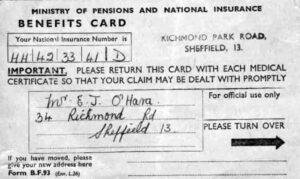 MINISTRY OF PENSIONS AND NATIONAL INSURANCE
BENEFITS CARD
Your National Insurance Number is
HH 42 33 41 D
RICHMOND PARK ROAD,
SHEFFIELD, 13.
IMPORTANT. PLEASE RETURN THIS CARD WITH EACH MEDICAL
CERTIFICATE SO THAT YOUR CLAIM MAY BE DEALT WITH PROMPTLY
Mr. E. J. O'Hara.
34 Richmond Rd
Sheffield 13.
For official use only
PLEASE TURN OVER
If you have moved, please
give your new address here
Form B.F.93